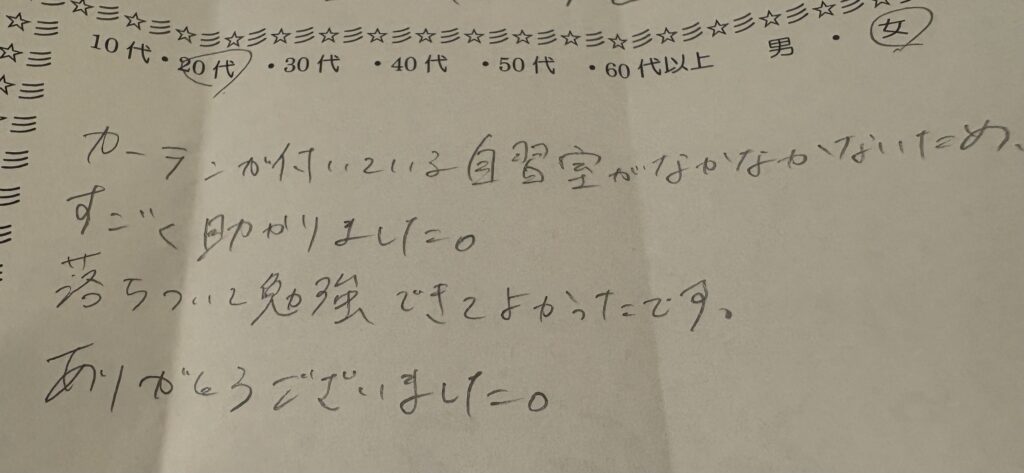 10代・20代・30代・40代・50代・60代以上　男・女
カーテンが付いている自習室がなかなかないため、
すごく助かりました。
落ちついて勉強できてよかったです。
ありがとうございました。